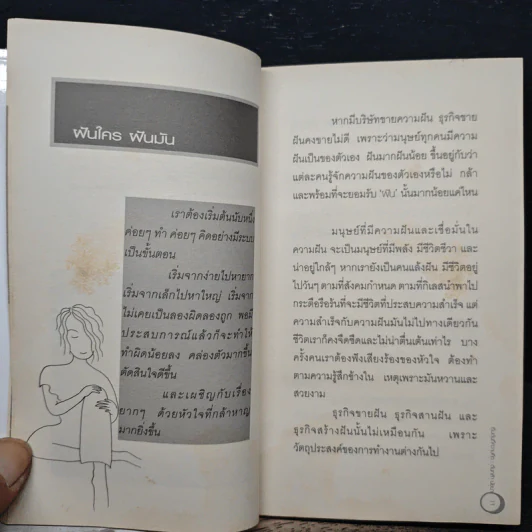 ฝันใคร ฝันมัน
เราต้องเริ่มต้นนับหนึ่ง
ค่อยๆ ทำ ค่อยๆ คิดอย่างมีระบบ
เป็นขั้นตอน
เริ่มจากง่ายไปหายาก
เริ่มจากเล็กไปหาใหญ่ เริ่มจาก
ไม่เคยเป็นลองผิดลองถูก พอมี
ประสบการณ์แล้วก็จะทำให้
ทำผิดน้อยลง คล่องตัวมากขึ้น
ตัดสินใจดีขึ้น
และเผชิญกับเรื่อง
ยากๆ ด้วยหัวใจที่กล้าหาญ
มากยิ่งขึ้น
หากมีบริษัทขายความฝัน ธุรกิจขาย
ฝันคงขายไม่ดี เพราะว่ามนุษย์ทุกคนมีความ
ฝันเป็นของตัวเอง ฝันมากฝันน้อย ขึ้นอยู่กับว่า
แต่ละคนรู้จักความฝันของตัวเองหรือไม่ กล้า
และพร้อมที่จะยอมรับ 'ฝัน' นั้นมากน้อยแค่ไหน
มนุษย์ที่มีความฝันและเชื่อมั่นใน
ความฝัน จะเป็นมนุษย์ที่มีพลัง มีชีวิตชีวา และ
น่าอยู่ใกล้ๆ หากเรายังเป็นคนแล้งฝัน มีชีวิตอยู่
ไปวันๆ ตามที่สังคมกำหนด ตามที่กิเลสนำพาไป
กระตือรือร้นที่จะมีชีวิตที่ประสบความสำเร็จ แต่
ความสำเร็จกับความฝันมันไม่ไปทางเดียวกัน
ชีวิตเราก็คงจืดชืดและไม่น่าตื่นเต้นเท่าไร บาง
ครั้งคนเราต้องฟังเสียงร้องของหัวใจ ต้องทำ
ตามความรู้สึกข้างใน เหตุเพราะมันหวานและ
สวยงาม
ธุรกิจขายฝัน ธุรกิจสานฝัน และ
ธุรกิจสร้างฝันนั้นไม่เหมือนกัน เพราะ
วัตถุประสงค์ของการทำงานต่างกันไป